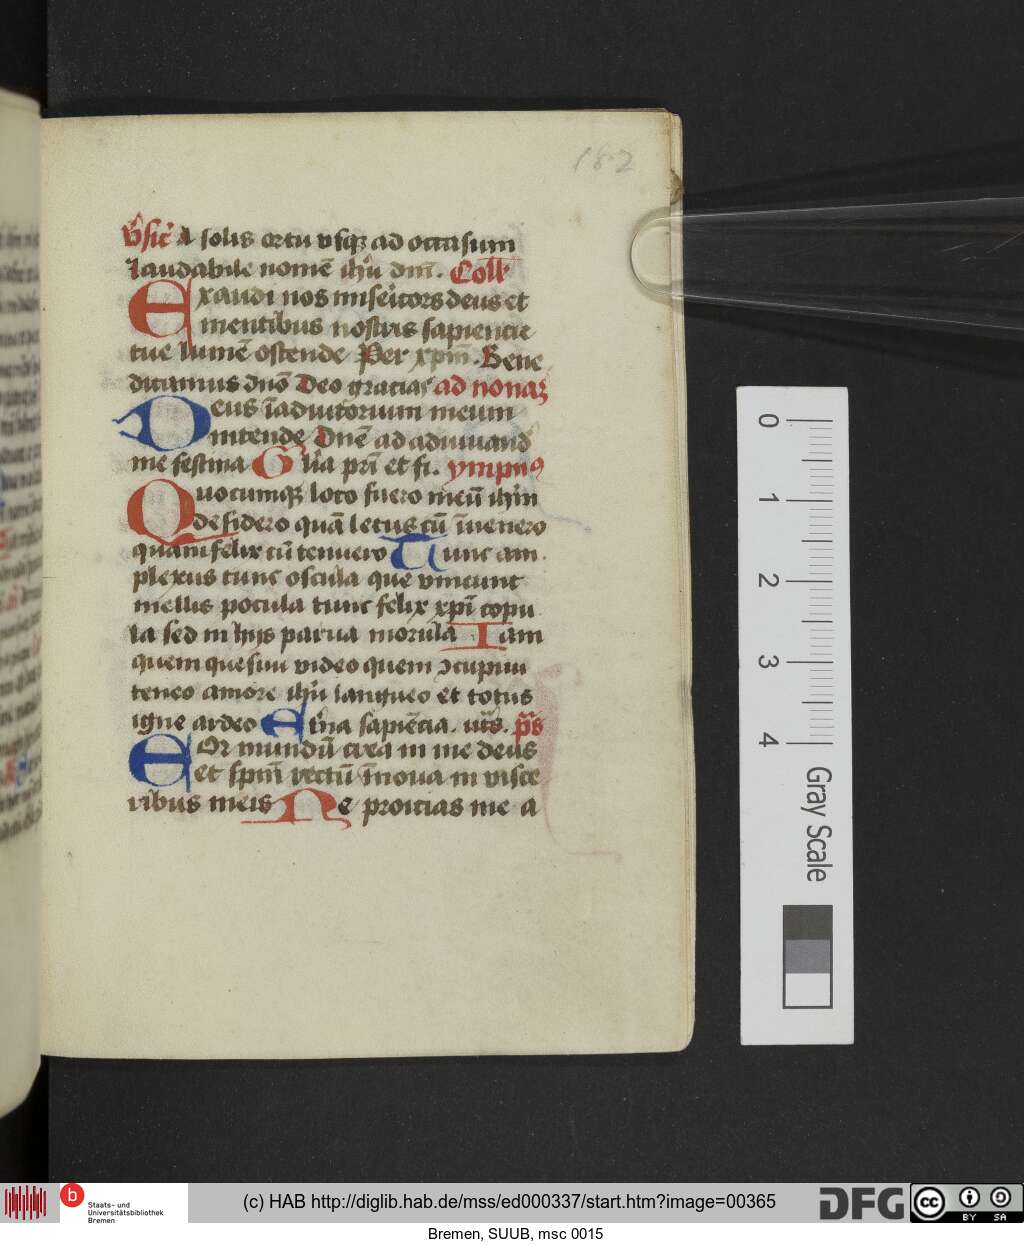 182
v̄sic̄ A solis ortu vsq₃ ad occasum
laudabile nomē ihū dm̄. Coll
Exaudi nos misēicors deus et
mentibus nostris sapiencie
tue lumē ostende Per xpm̄. Bene
dicamus dnō Deo gracias ad nonaꝫ
Deus īadiutorium meum
intende Dnē ad adiuuand
me festina Glīa prī et fi. ympnꝰ
Quocumq₃ loco fuero meū ihm̄
desidero quā letus cū īuenero
quam felix cū tenuero Tunc am
plexus tunc oscula que vincunt
mellis pocula tunc felix xpī copu
la sed in hijs parua morula Iam
quem quesiui video quem ↄcupiui
teneo amore ihū langueo et totus
igne ardeo Etn̄a sapiēcia. ut s̄. p̄s
COR mundū crea in me deus
et spm̄ rectū īnoua in visce
ribus meis Ne proicias me a
0
1
2
3
4
Gray Scale
b
Staats- und
Universitätsbibliothek
Bremen
(c) HAB http://diglib.hab.de/mss/ed000337/start.htm?image=00365
DFG
cc
BY SA
Bremen, SUUB, msc 0015